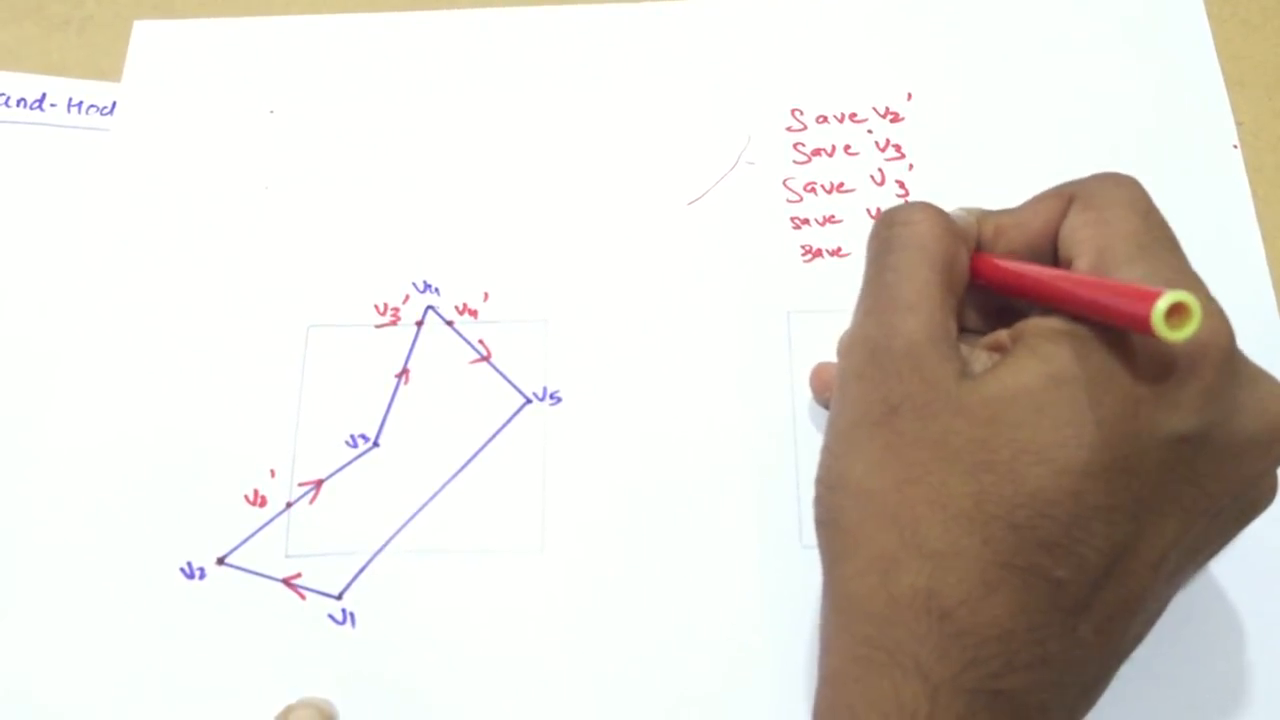 and-Hod
Save v2'
Save v3
Save v3'
save
save
v4
v3' v4'
v5
v3
v2'
v2
v1